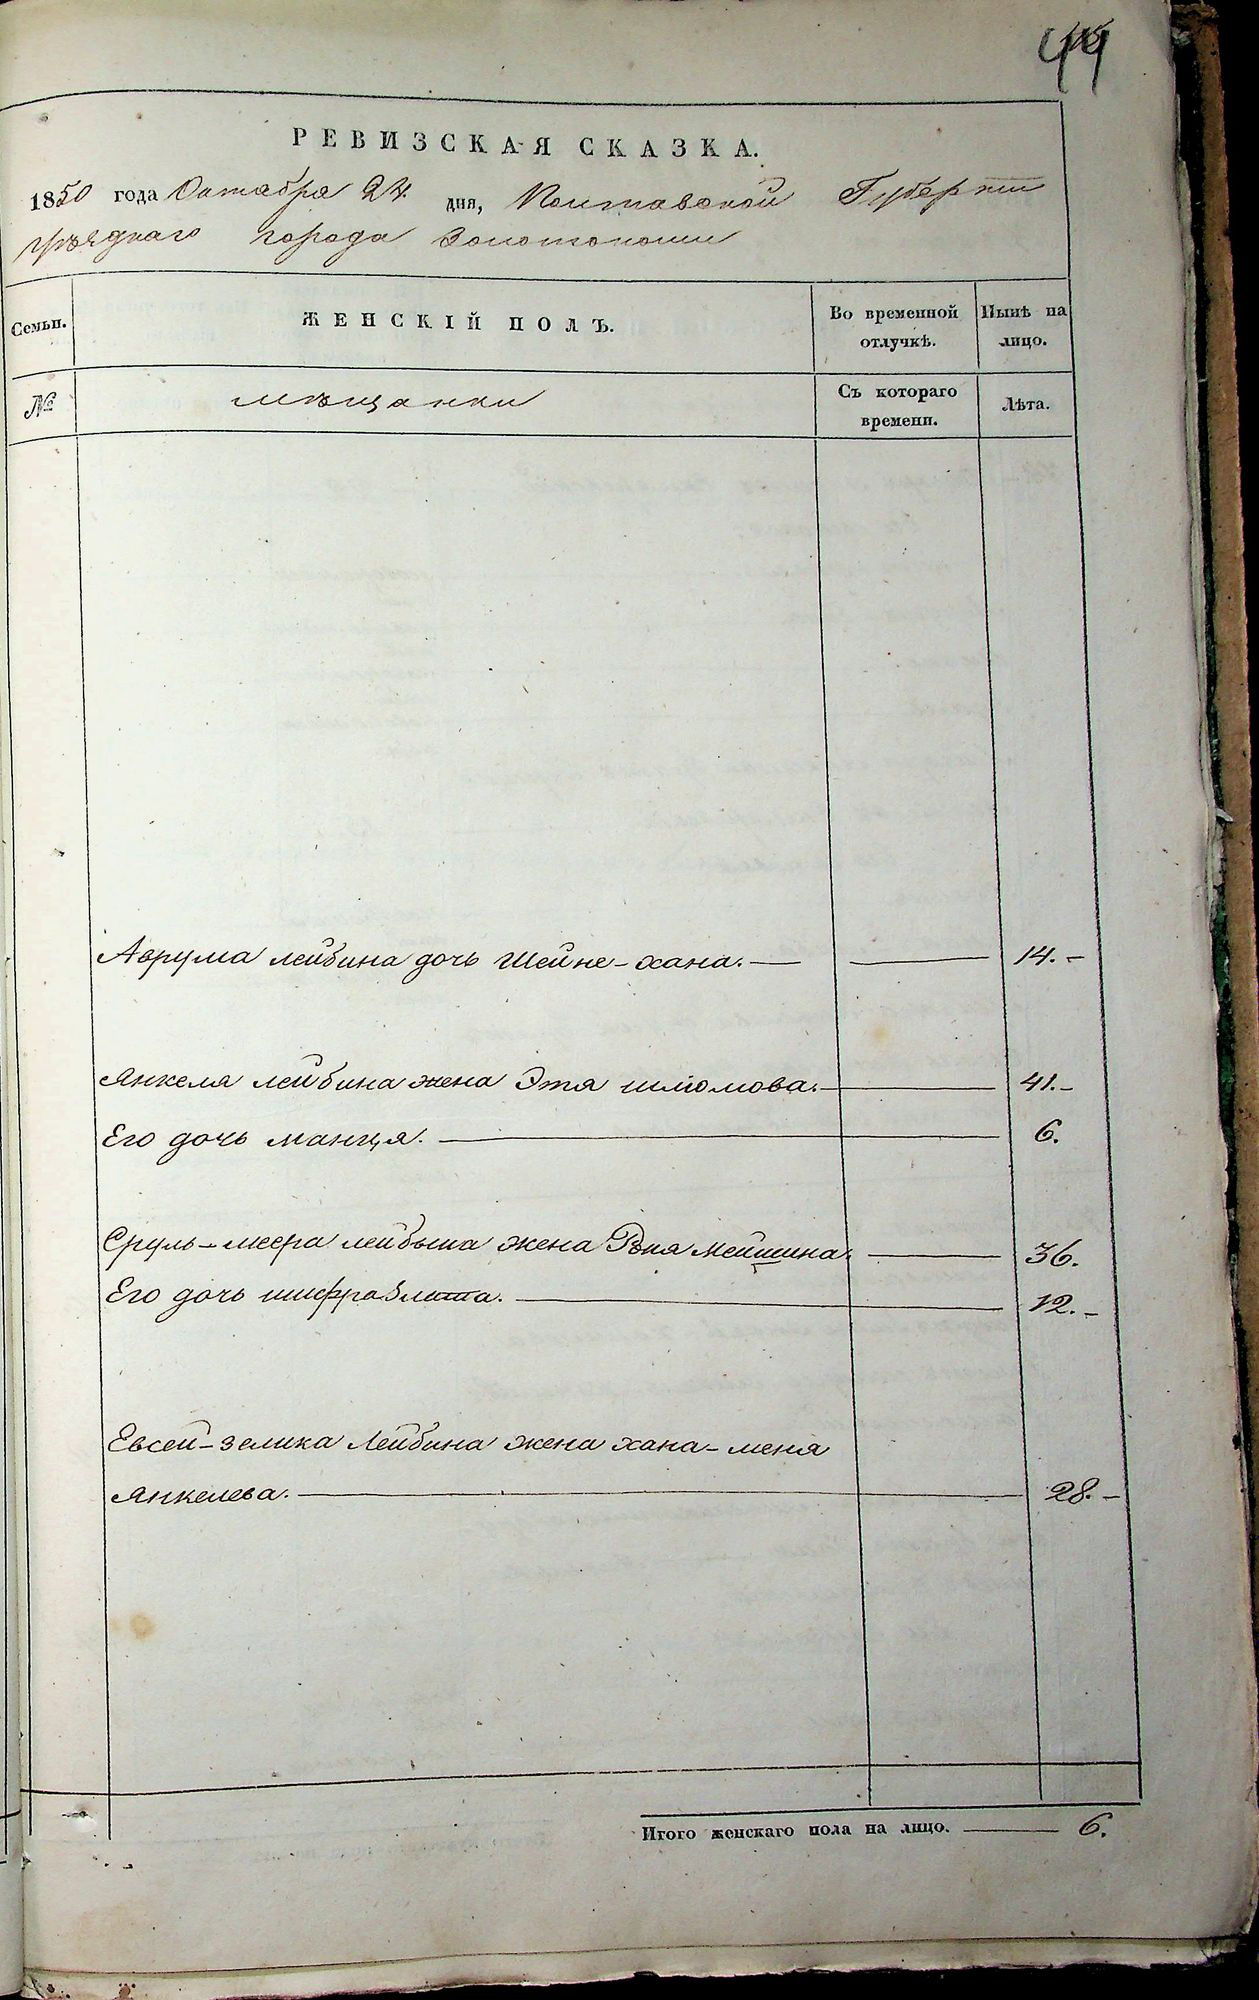 44
РЕВИЗСКАЯ СКАЗКА.
1850 года Октября 24 дня, Полтавской Губернии
уѣзднаго города Золотоноши
Семьи. ЖЕНСКІЙ ПОЛЪ. Во временной отлучкѣ. Нынѣ на лицо.
№ мѣщанки Съ котораго времени. Лѣта.
Аврума Лейбина дочь Шейне-хана. — 14.-
Янкеля Лейбина жена Этя Шліомова. — 41.-
Его дочь Манця. — 6.
Сруль-меера Лейбина жена Рóня Мейшина. — 36.
Его дочь Шифра злата. — 12.-
Евсей-зелика Лейбина жена хана-меня
Янкелева. — 28.-
Итого женскаго пола на лицо. — 6.